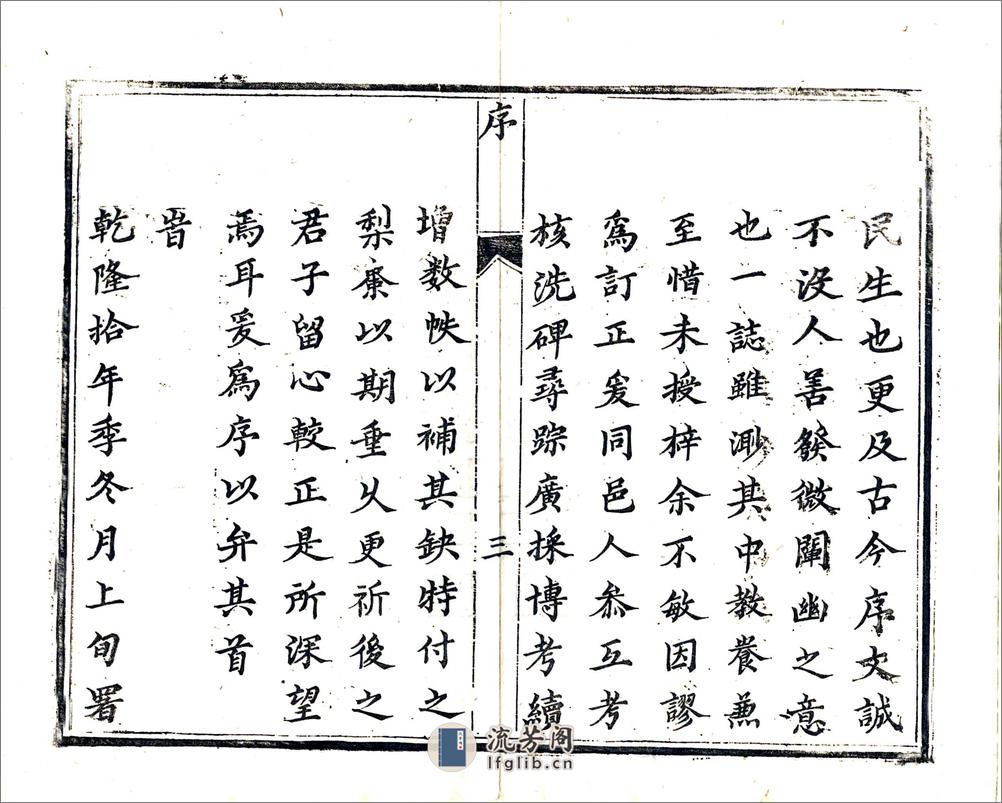 民生也更及古今序文誠
不没人善發微闡幽之意
也一誌雖渺其中教養兼
至惜未授梓余不敏因謬
爲訂正爰同邑人叅互考
核洗碑尋踪廣採博考續
序
三
增数帙以補其缺特付之
梨棗以期垂久更祈後之
君子留心較正是所深望
焉耳爰爲序以弁其首
旹
乾隆拾年季冬月上旬署
流芳阁
lfglib.cn